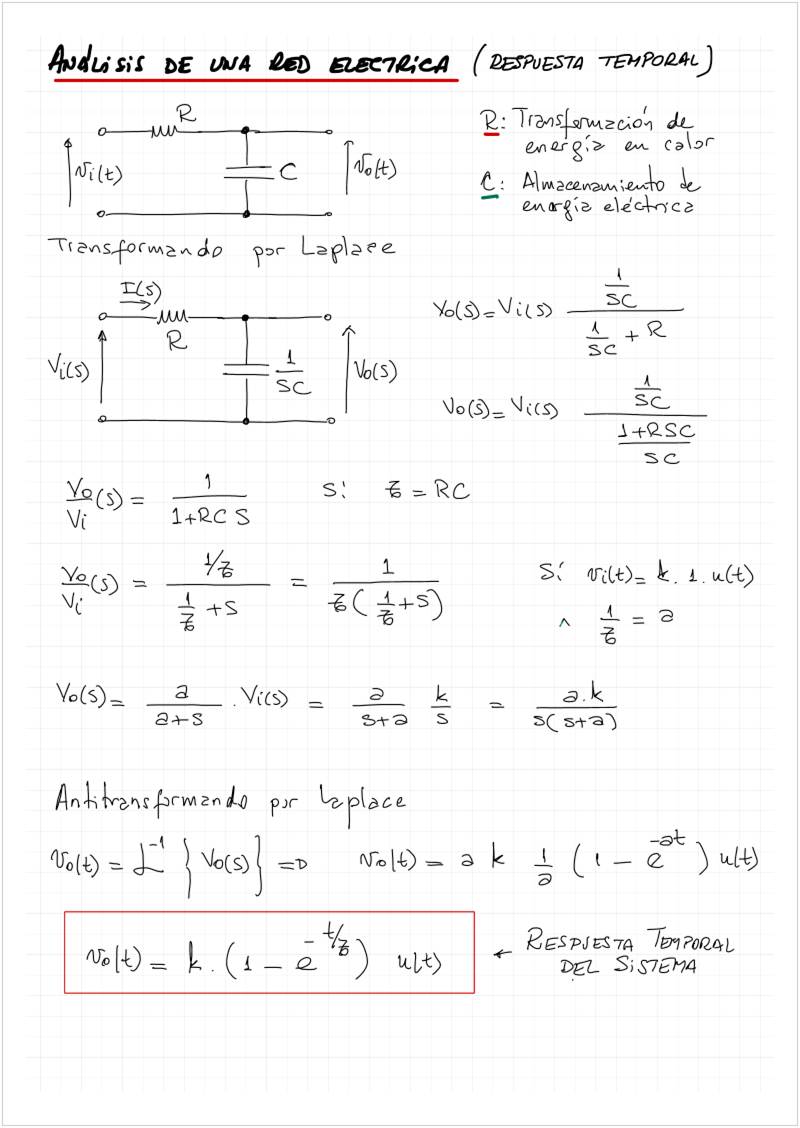 ANÁLISIS DE UNA RED ELECTRICA (RESPUESTA TEMPORAL)
R
Vi(t)
C
Vo(t)
R: Transformación de
energía en calor
C: Almacenamiento de
energía eléctrica
Transformando por Laplace
I(s)
R
Vi(s)
1/SC
Vo(s)
Vo(s) = Vi(s) (1/SC) / (1/SC + R)
Vo(s) = Vi(s) (1/SC) / ((1+RSC)/SC)
Vo/Vi (s) = 1/(1+RC S)   Si   τ = RC
Vo/Vi (s) = (1/τ) / (1/τ + S) = 1 / (τ(1/τ + S))   Si   vi(t) = k . 1 . u(t)
^ 1/τ = a
Vo(s) = a/(a+s) . Vi(s) = a/(s+a) k/s = a.k / (s(s+a))
Antitransformando por Laplace
vo(t) = L⁻¹ { Vo(s) } => vo(t) = a k 1/a (1 - e^(-at)) u(t)
vo(t) = k . (1 - e^(-t/τ)) u(t)
← RESPUESTA TEMPORAL
DEL SISTEMA